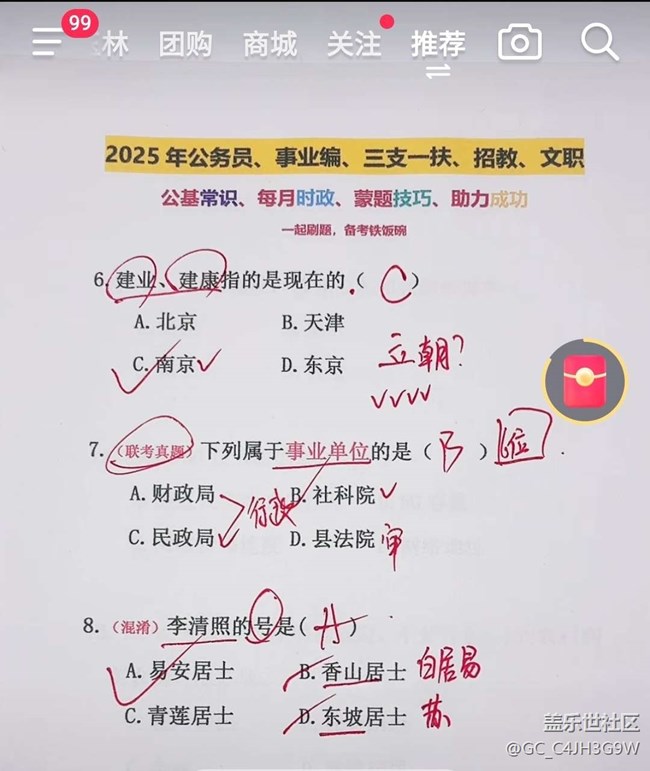 99
林 团购 商城 关注 推荐
2025年公务员、事业编、三支一扶、招教、文职
公基常识、每月时政、蒙题技巧、助力成功
一起刷题，备考铁饭碗
6.建业、建康指的是现在的.( C )
A.北京 B.天津
C.南京 D.东京
立朝?
7.(联考真题)下列属于事业单位的是( B )
A.财政局 B.社科院
行政
C.民政局 D.县法院 审
8.(混淆)李清照的号是( A )
A.易安居士 B.香山居士 白居易
C.青莲居士 D.东坡居士 苏
盖乐世社区
@GC_C4JH3G9W